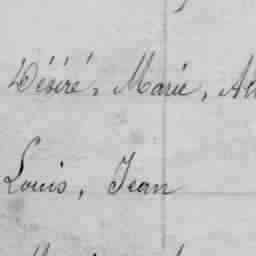 Désiré, Marie,
Louis, Jean